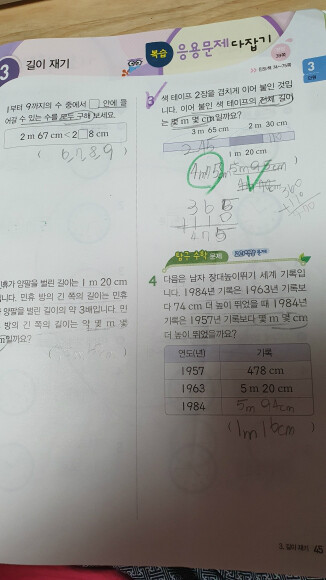 3
길이 재기
복습
응용문제 다잡기
3
단원
1부터 9까지의 수 중에서 □ 안에 들
어갈 수 있는 수를 모두 구해 보세요.
2 m 67 cm < 2□8 cm
( 6, 7, 8, 9 )
민휴가 양팔을 벌린 길이는 1 m 20 cm
입니다. 민휴 방의 긴 쪽의 길이는 민휴
가 양팔을 벌린 길이의 약 3배입니다. 민
방의 긴 쪽의 길이는 약 몇 m 몇
cm일까요?
3
색 테이프 2장을 겹치게 이어 붙인 것입
니다. 이어 붙인 색 테이프의 전체 길이
는 몇 m 몇 cm일까요?
3 m 65 cm 2 m 30 cm
2 45
1 m 20 cm
365
110
475
탐구 수학 문제
4
다음은 남자 장대높이뛰기 세계 기록입
니다. 1984년 기록은 1963년 기록보
다 74 cm 더 높이 뛰었을 때 1984년
기록은 1957년 기록보다 몇 m 몇 cm
더 높이 뛰었을까요?
연도(년) 기록
1957 478 cm
1963 5 m 20 cm
1984 5m 94cm
( 1m 16cm )
3. 길이 재기 45